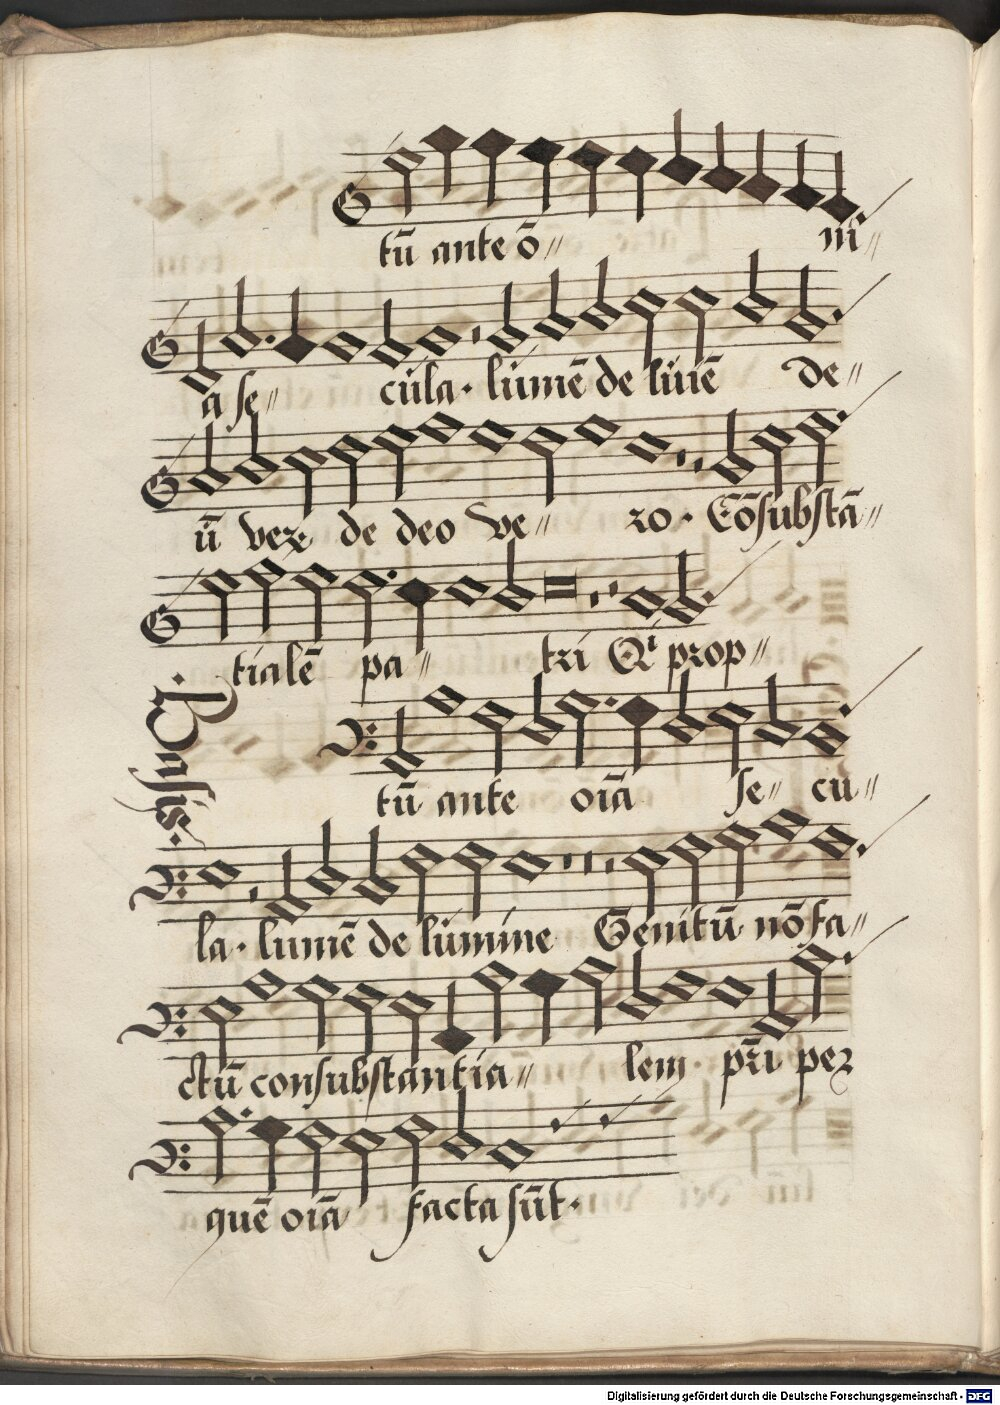 tū ante ō〃 nī〃
a se〃 cula · lumē de luīē de〃
ū vex de deo ve〃 ro · Cōsubstā〃
tialē pa〃 tri Qt prop〃
Basis ·
tū ante oīa se〃 cu〃
la · lumē de lumine Genitū nō fa〃
ctū consubstantia〃 lem · pr̄i per
quē oīa facta sūt ·
Digitalisierung gefördert durch die Deutsche Forschungsgemeinschaft - DFG